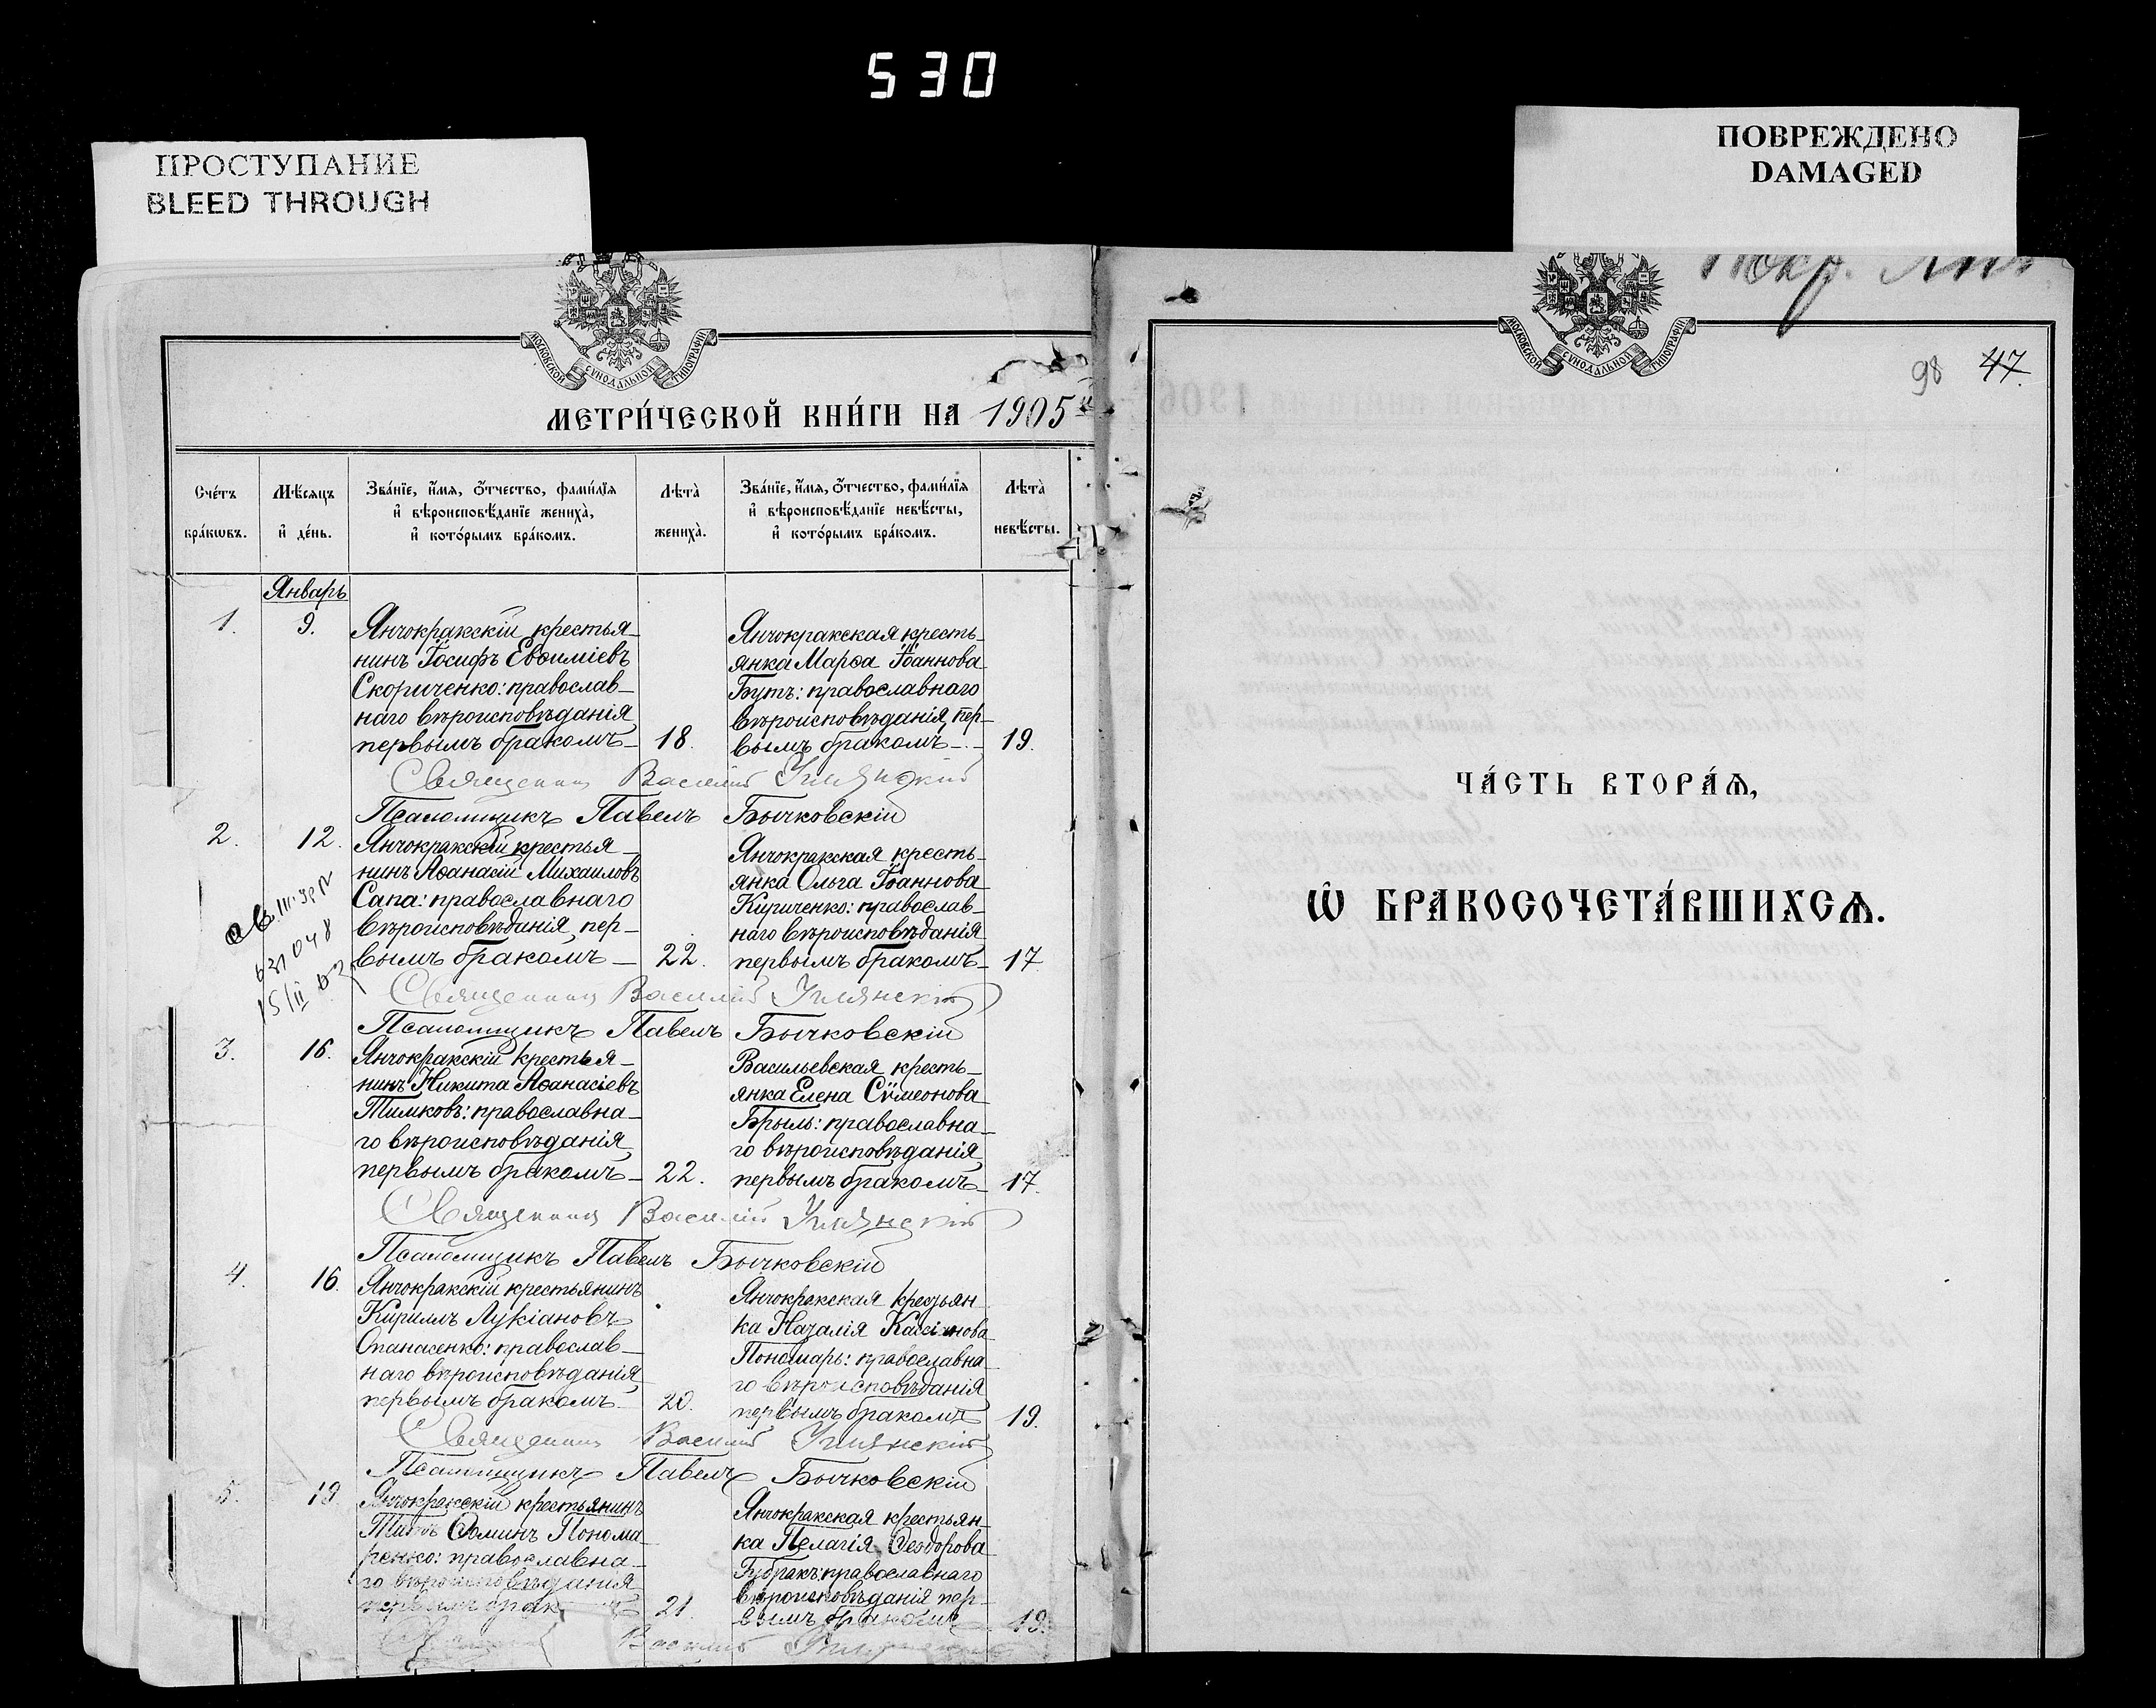 530
ПРОСТУПАНИЕ
BLEED THROUGH
ПОВРЕЖДЕНО
DAMAGED
МОСКОВСКОЙ СѴНОДАЛЬНОЙ ТИПОГРАФІИ
МЕТРИ́ЧЕСКОЙ КНИ́ГИ НА 1905
Сче́тъ бра́кѡвъ.
Мѣ́сяцъ и҆ де́нь.
Зва́нїе, и҆́мя, ѻ҆́тчество, фами́лїя и҆ вѣроисповѣ́данїе жениха̀, и҆ кото́рымъ бра́комъ.
Лѣта̀ жениха̀.
Зва́нїе, и҆́мя, ѻ҆́тчество, фами́лїя и҆ вѣроисповѣ́данїе невѣ́сты, и҆ кото́рымъ бра́комъ.
Лѣта̀ невѣ́сты.
Январь
1. 9.
Янчокракскій крестья-
нинъ Іосифъ Евѳиміевъ
Скориченко: православ-
наго вѣроисповѣданія
первымъ бракомъ- 18.
Янчокракская кресть-
янка Марѳа Іоаннова
Бутъ: православнаго
вѣроисповѣданія, пер-
вымъ бракомъ - 19.
Священник Василій
Псаломщикъ Павелъ Бычковскій
2. 12.
Янчокракскій крестья-
нинъ Аѳанасій Михаиловъ
Сапа: православнаго
вѣроисповѣданія, пер-
вымъ бракомъ - 22.
Янчокракская кресть-
янка Ольга Іоаннова
Кириченко: православ-
наго вѣроисповѣданія
первымъ бракомъ- 17.
Священник Василій
Псаломщикъ Павелъ Бычковскій
3. 16.
Янчокракскій крестья-
нинъ Никита Аѳанасіевъ
Тимковъ: православна-
го вѣроисповѣданія
первымъ бракомъ- 22.
Васильевская кресть-
янка Елена Сѷмеонова
Брыль: православна-
го вѣроисповѣданія
первымъ бракомъ- 17.
Священник Василій
Псаломщикъ Павелъ Бычковскій
4. 16.
Янчокракскій крестьянинъ
Кириллъ Лукіановъ
Опанасенко: православ-
наго вѣроисповѣданія
первымъ бракомъ. 20.
Янчокракская крестьян
ка Наталія Кассіанова
Пономарь: православна-
го вѣроисповѣданія
первымъ бракомъ 19.
Священник Василій
Псаломщикъ Павелъ Бычковскій
5. 19.
Янчокракскій крестьянинъ
Титъ Ѳоминъ Понома
ренко: православна-
го вѣроисповѣданія
первымъ 21.
Янчокракская крестьян
ка Пелагія Ѳеодорова
Губракъ: православнаго
вѣроисповѣданія пер-
вымъ бракомъ 19.
Василій
МОСКОВСКОЙ СѴНОДАЛЬНОЙ ТИПОГРАФІИ
98 47.
ЧА́СТЬ ВТОРА́Ѧ,
Ѡ҆ БРАКОСОЧЕТА́ВШИХСѦ.